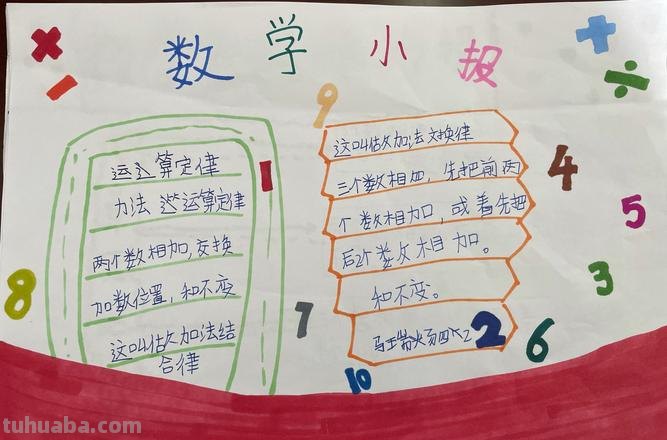 数学小报
运算定律
力法 运算定律
两个数相加,交换
加数位置,和不变
这叫做加法结
合律
这叫做加法交换律
三个数相加,先把前两
个数相加,或着先把
后2个数相加。
和不变。
1
2
3
4
5
6
7
8
9
10
tuhuaba.com